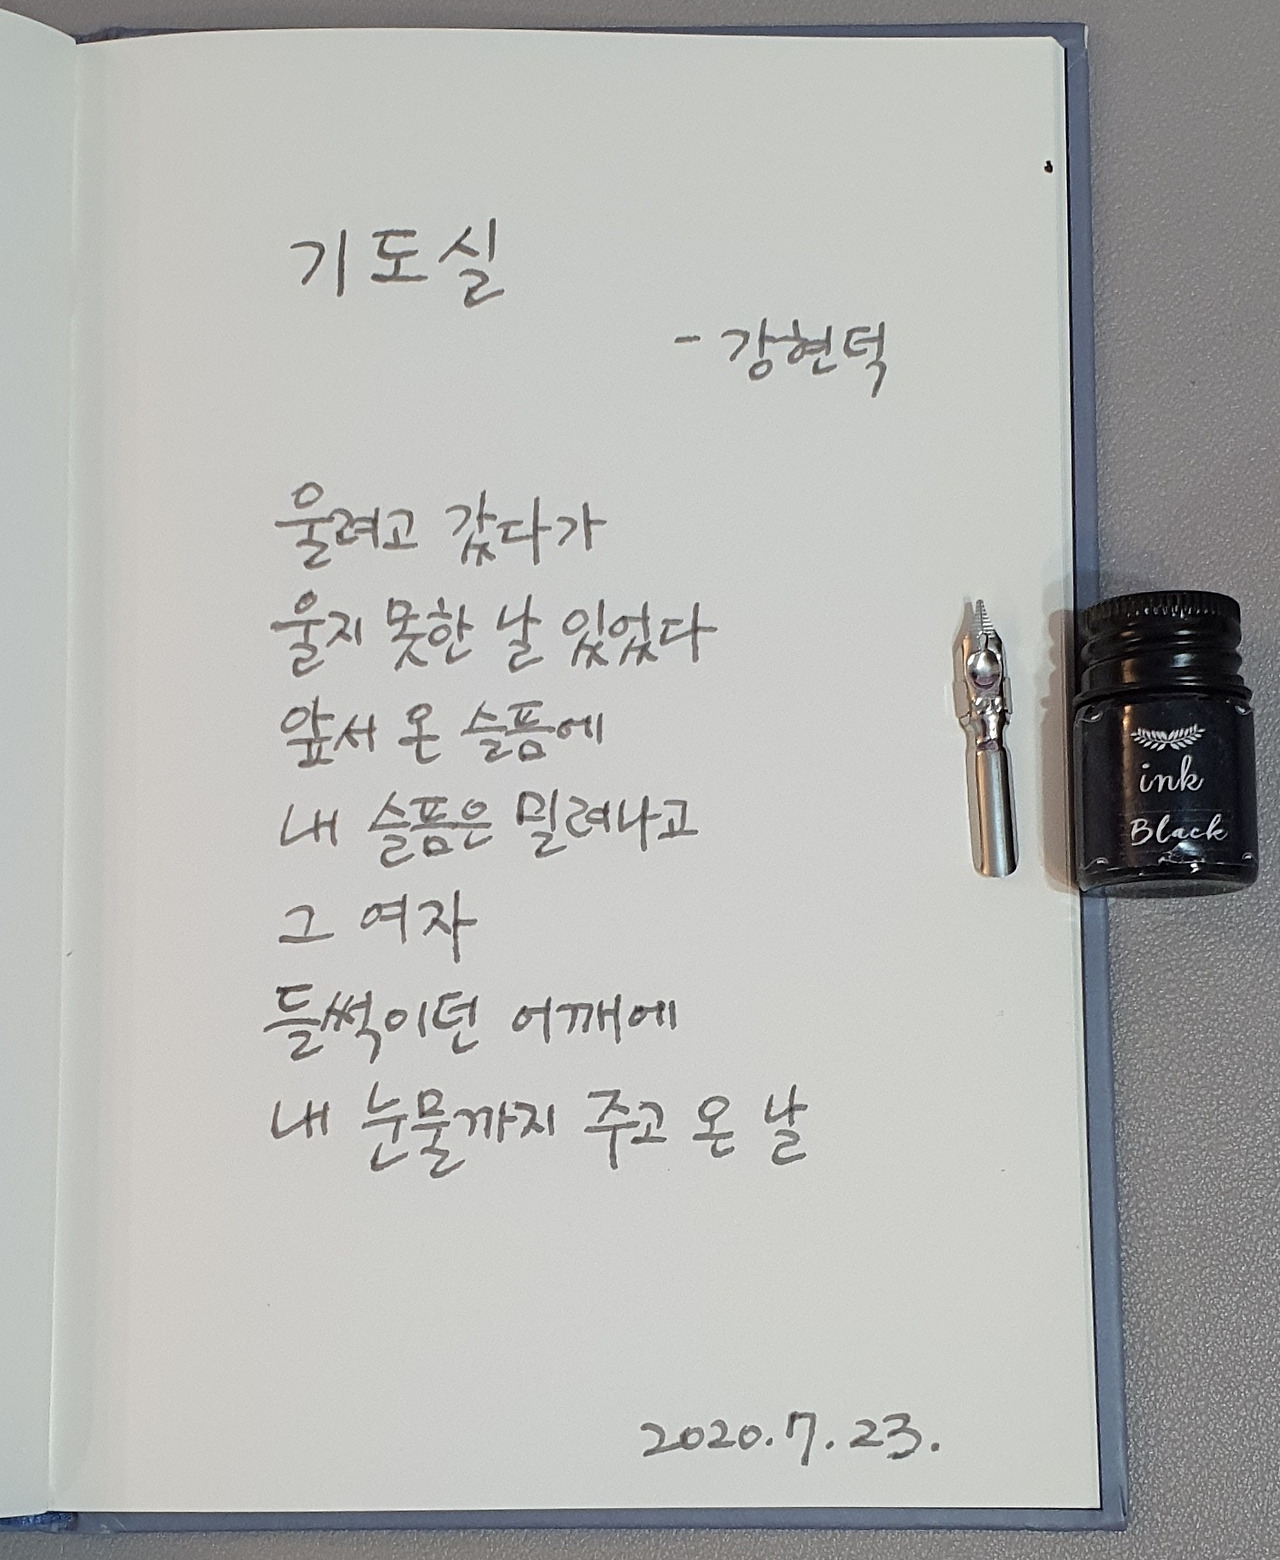 기도실
- 강현덕
울려고 갔다가
울지 못한 날 있었다
앞서 온 슬픔에
내 슬픔은 밀려나고
그 여자
들썩이던 어깨에
내 눈물까지 주고 온 날
2020.7.23.
ink
Black